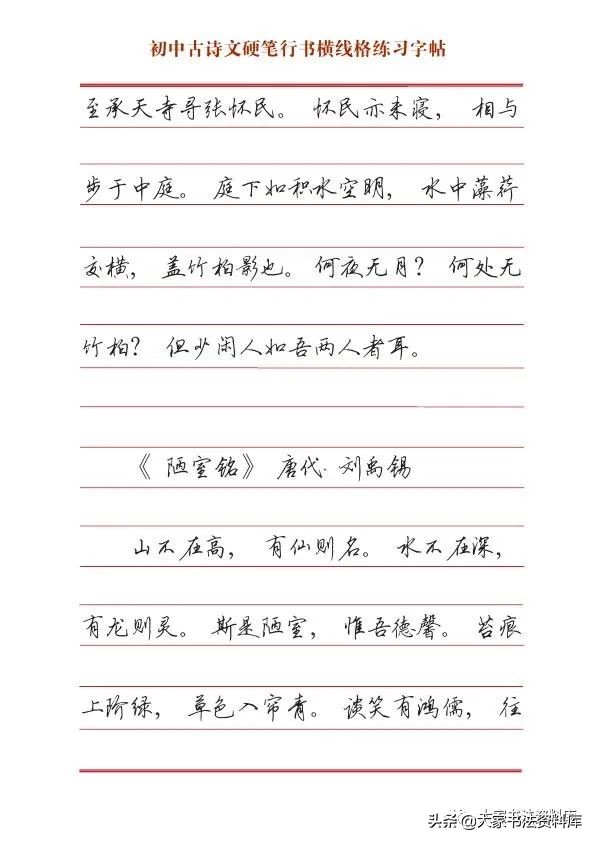 初中古诗文硬笔行书横线格练习字帖
至承天寺寻张怀民。怀民亦未寝，相与
步于中庭。庭下如积水空明，水中藻荇
交横，盖竹柏影也。何夜无月？何处无
竹柏？但少闲人如吾两人者耳。
《陋室铭》唐代·刘禹锡
山不在高，有仙则名。水不在深，
有龙则灵。斯是陋室，惟吾德馨。苔痕
上阶绿，草色入帘青。谈笑有鸿儒，往
头条@大家书法资料库